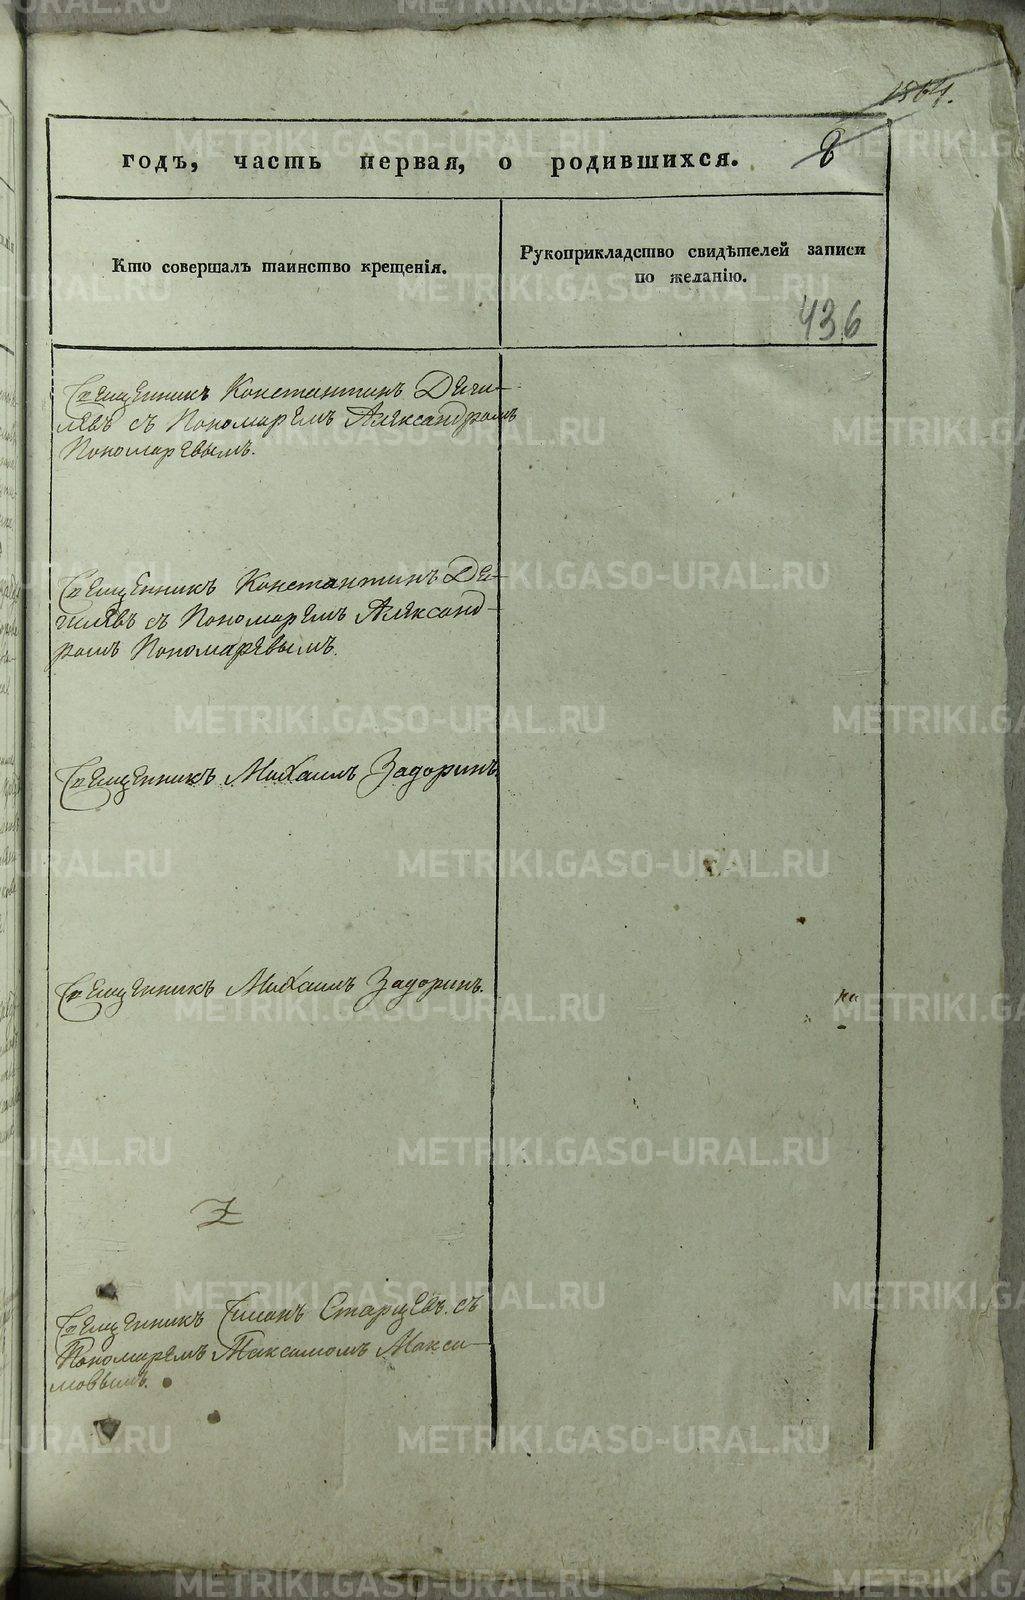 годъ, часть первая, о родившихся. 8
Кто совершалъ таинство крещенія.
Рукоприкладство свидѣтелей записи
по желанію.
436
Священникъ Константинъ Деги-
левъ съ Пономаремъ Александромъ
Пономаревымъ.
Священникъ Константинъ Де-
гилевъ съ Пономаремъ Александ-
ромъ Пономаревымъ.
Священникъ Михаилъ Задоринъ.
Священникъ Михаилъ Задоринъ.
Священникъ Симонъ Старцевъ съ
Пономаремъ Максимомъ Макси-
мовымъ.
METRIKI.GASO-URAL.RU